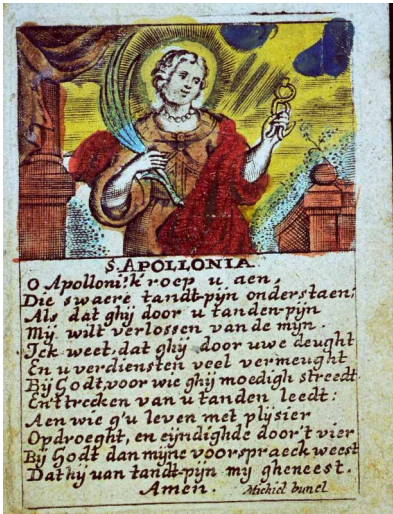 S. APOLLONIA
O Apolloni: k roep u aen,
Die swaere tandt-pijn onderstaen;
Als dat ghij door u tanden-pijn
Mij wilt verlossen van de mijn.
Ick weet, dat ghij door uwe deught
En u verdiensten veel vermeught
Bij Godt, voor wie ghij moedigh streedt
En't trecken van u tanden leedt:
Aen wie g'u leven met plijsier
Opdroeght, en eijndighde door't vier
Bij Godt dan mijne voorspraeck weest
Dat hij van tandt-pijn mij gheneest.
Amen. Michiel bunel